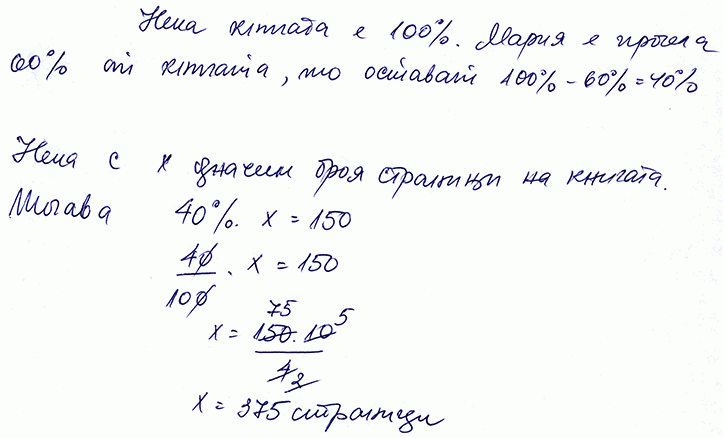 Нека книгата е 100%. Мария е прочела
60% от книгата, то остават 100% - 60% = 40%
Нека с x значим броя страници на книгата.
Тогава 40%. x = 150
40/100 . x = 150
75 5
x = 150.10/4 2
x = 375 страници